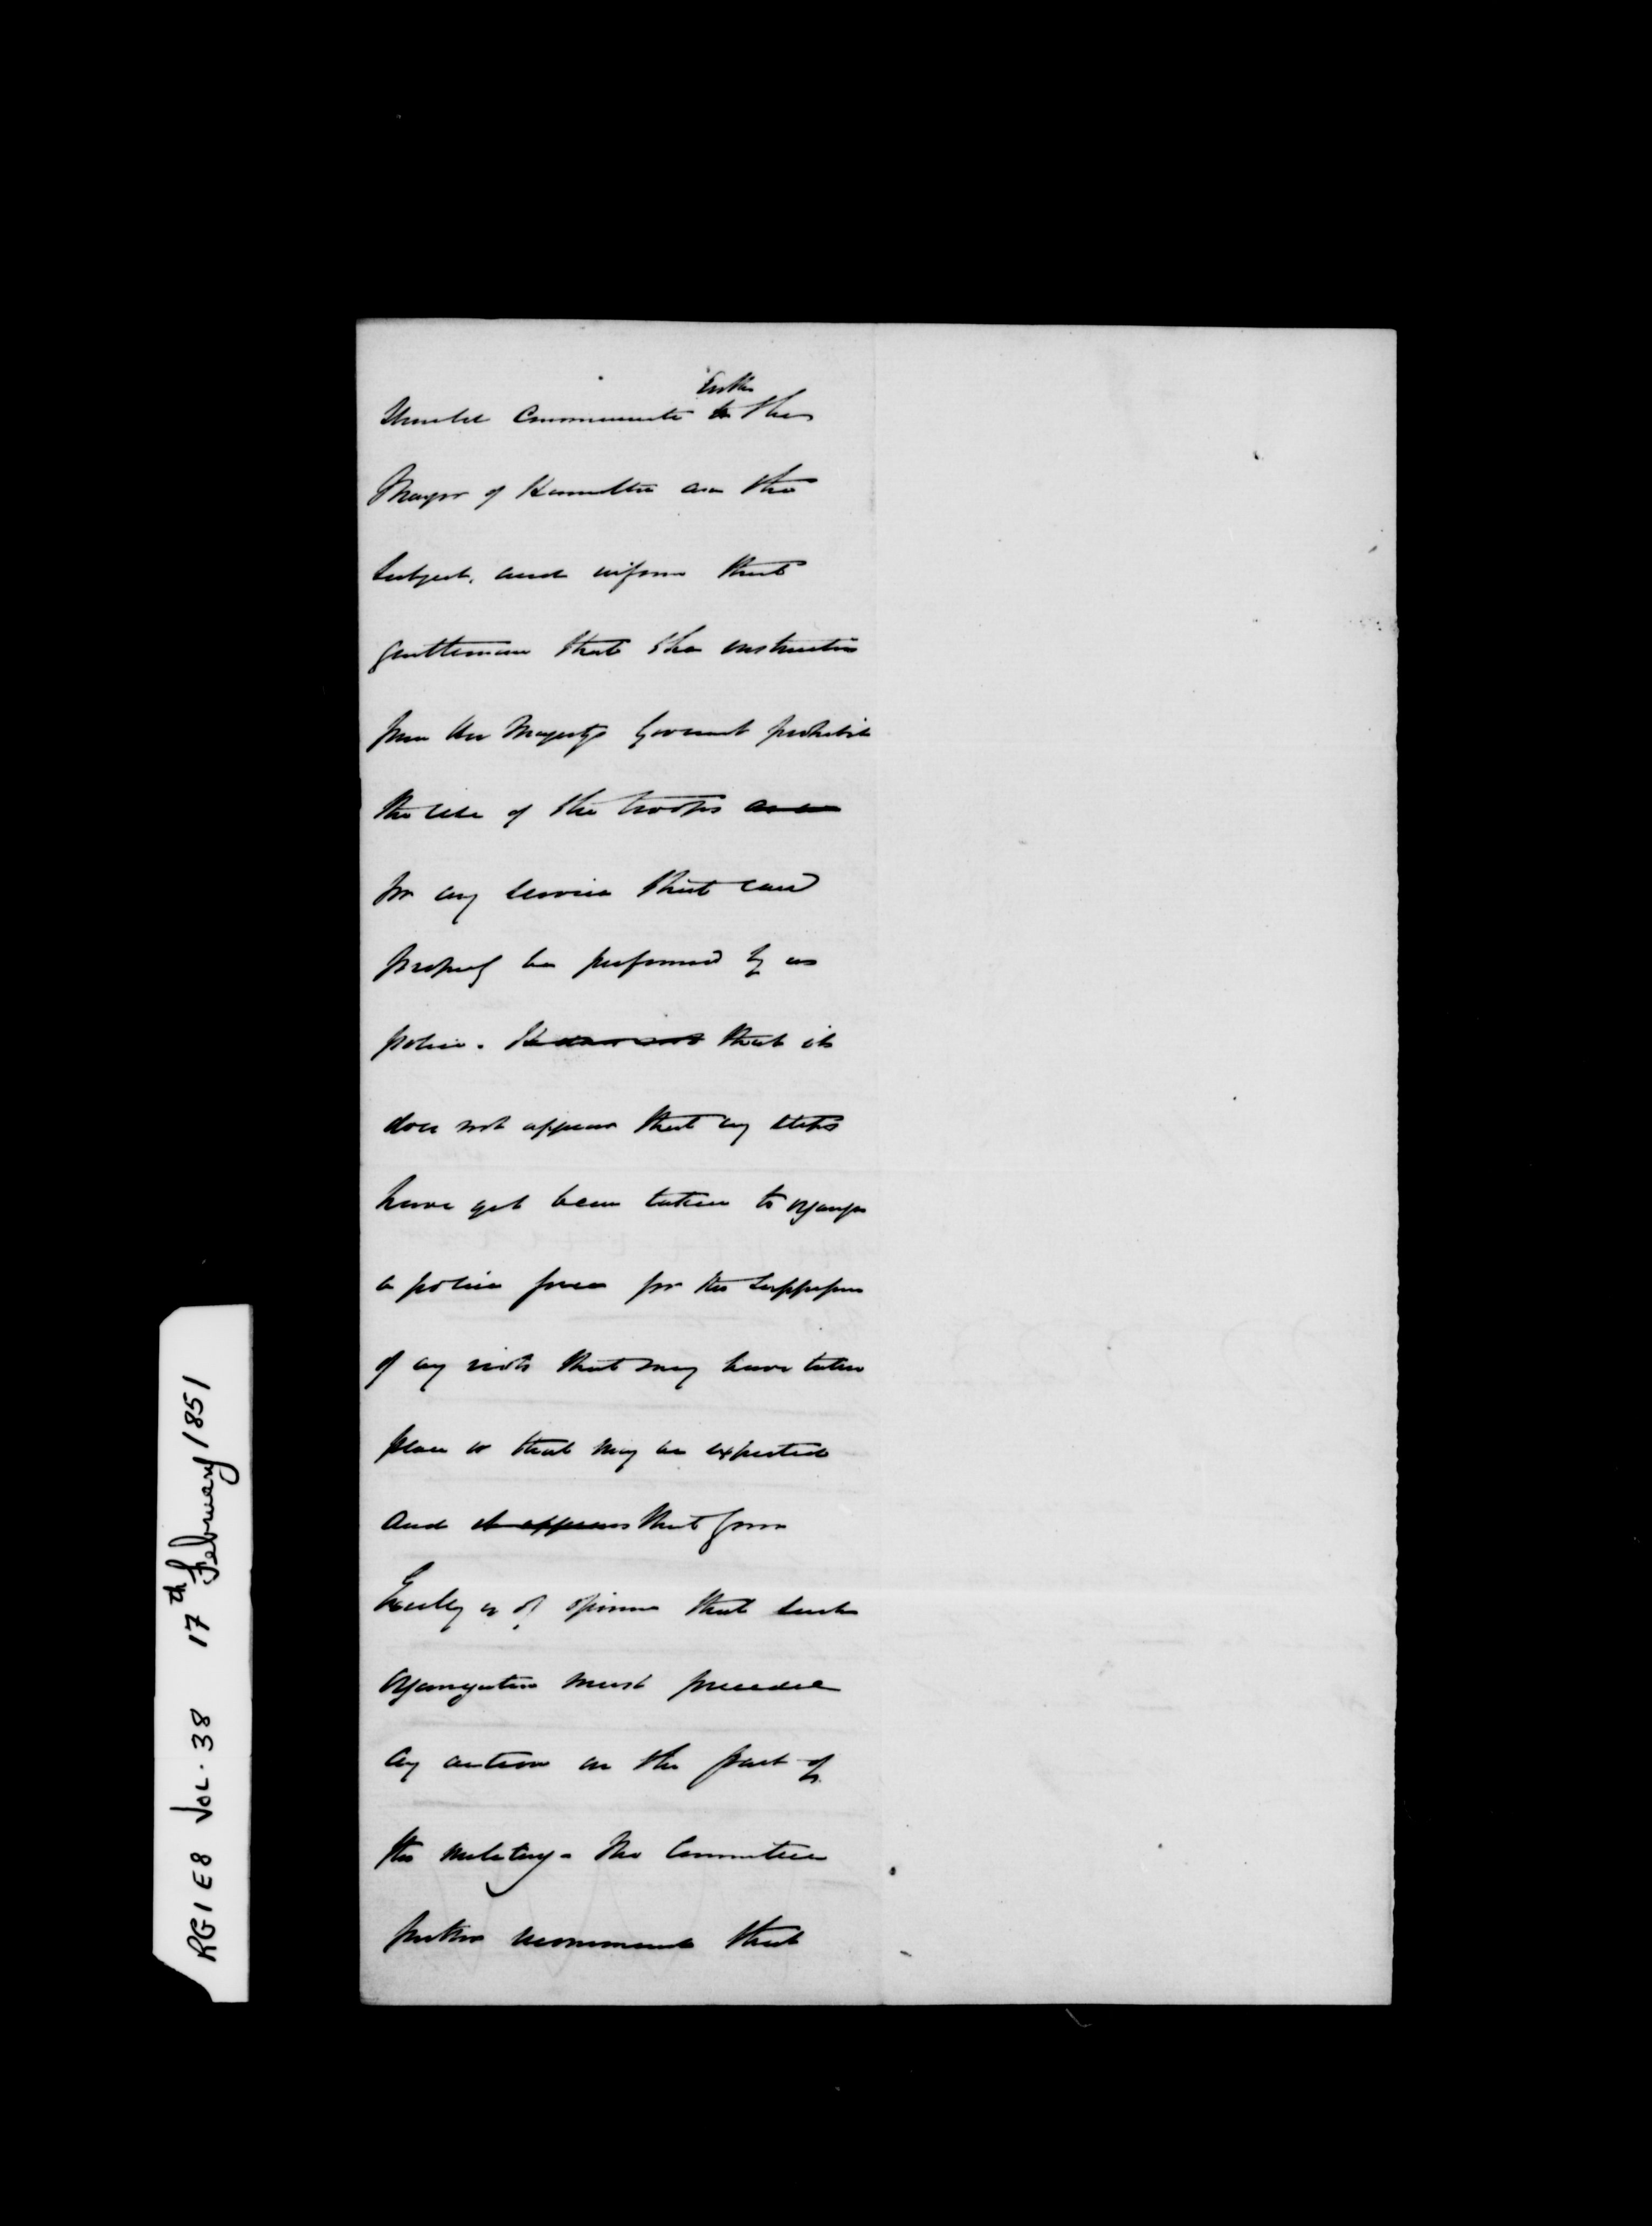 should communicate with the
Mayor of Hamilton on the
subject, and inform that
gentleman that the instructions
from Her Majestys Governt prohibit
the use of the troops
for any service that can
properly be performed by a
police. that it
does not appear that any steps
have yet been taken to organize
a police force for the suppression
of any riots that may have taken
place or that may be expected
and it appears that Your
Excelly is of opinion that such
organization must precede
any action on the part of
the military. The Committee
further recommend that
RG1 E8 VOL. 38 17th February 1851